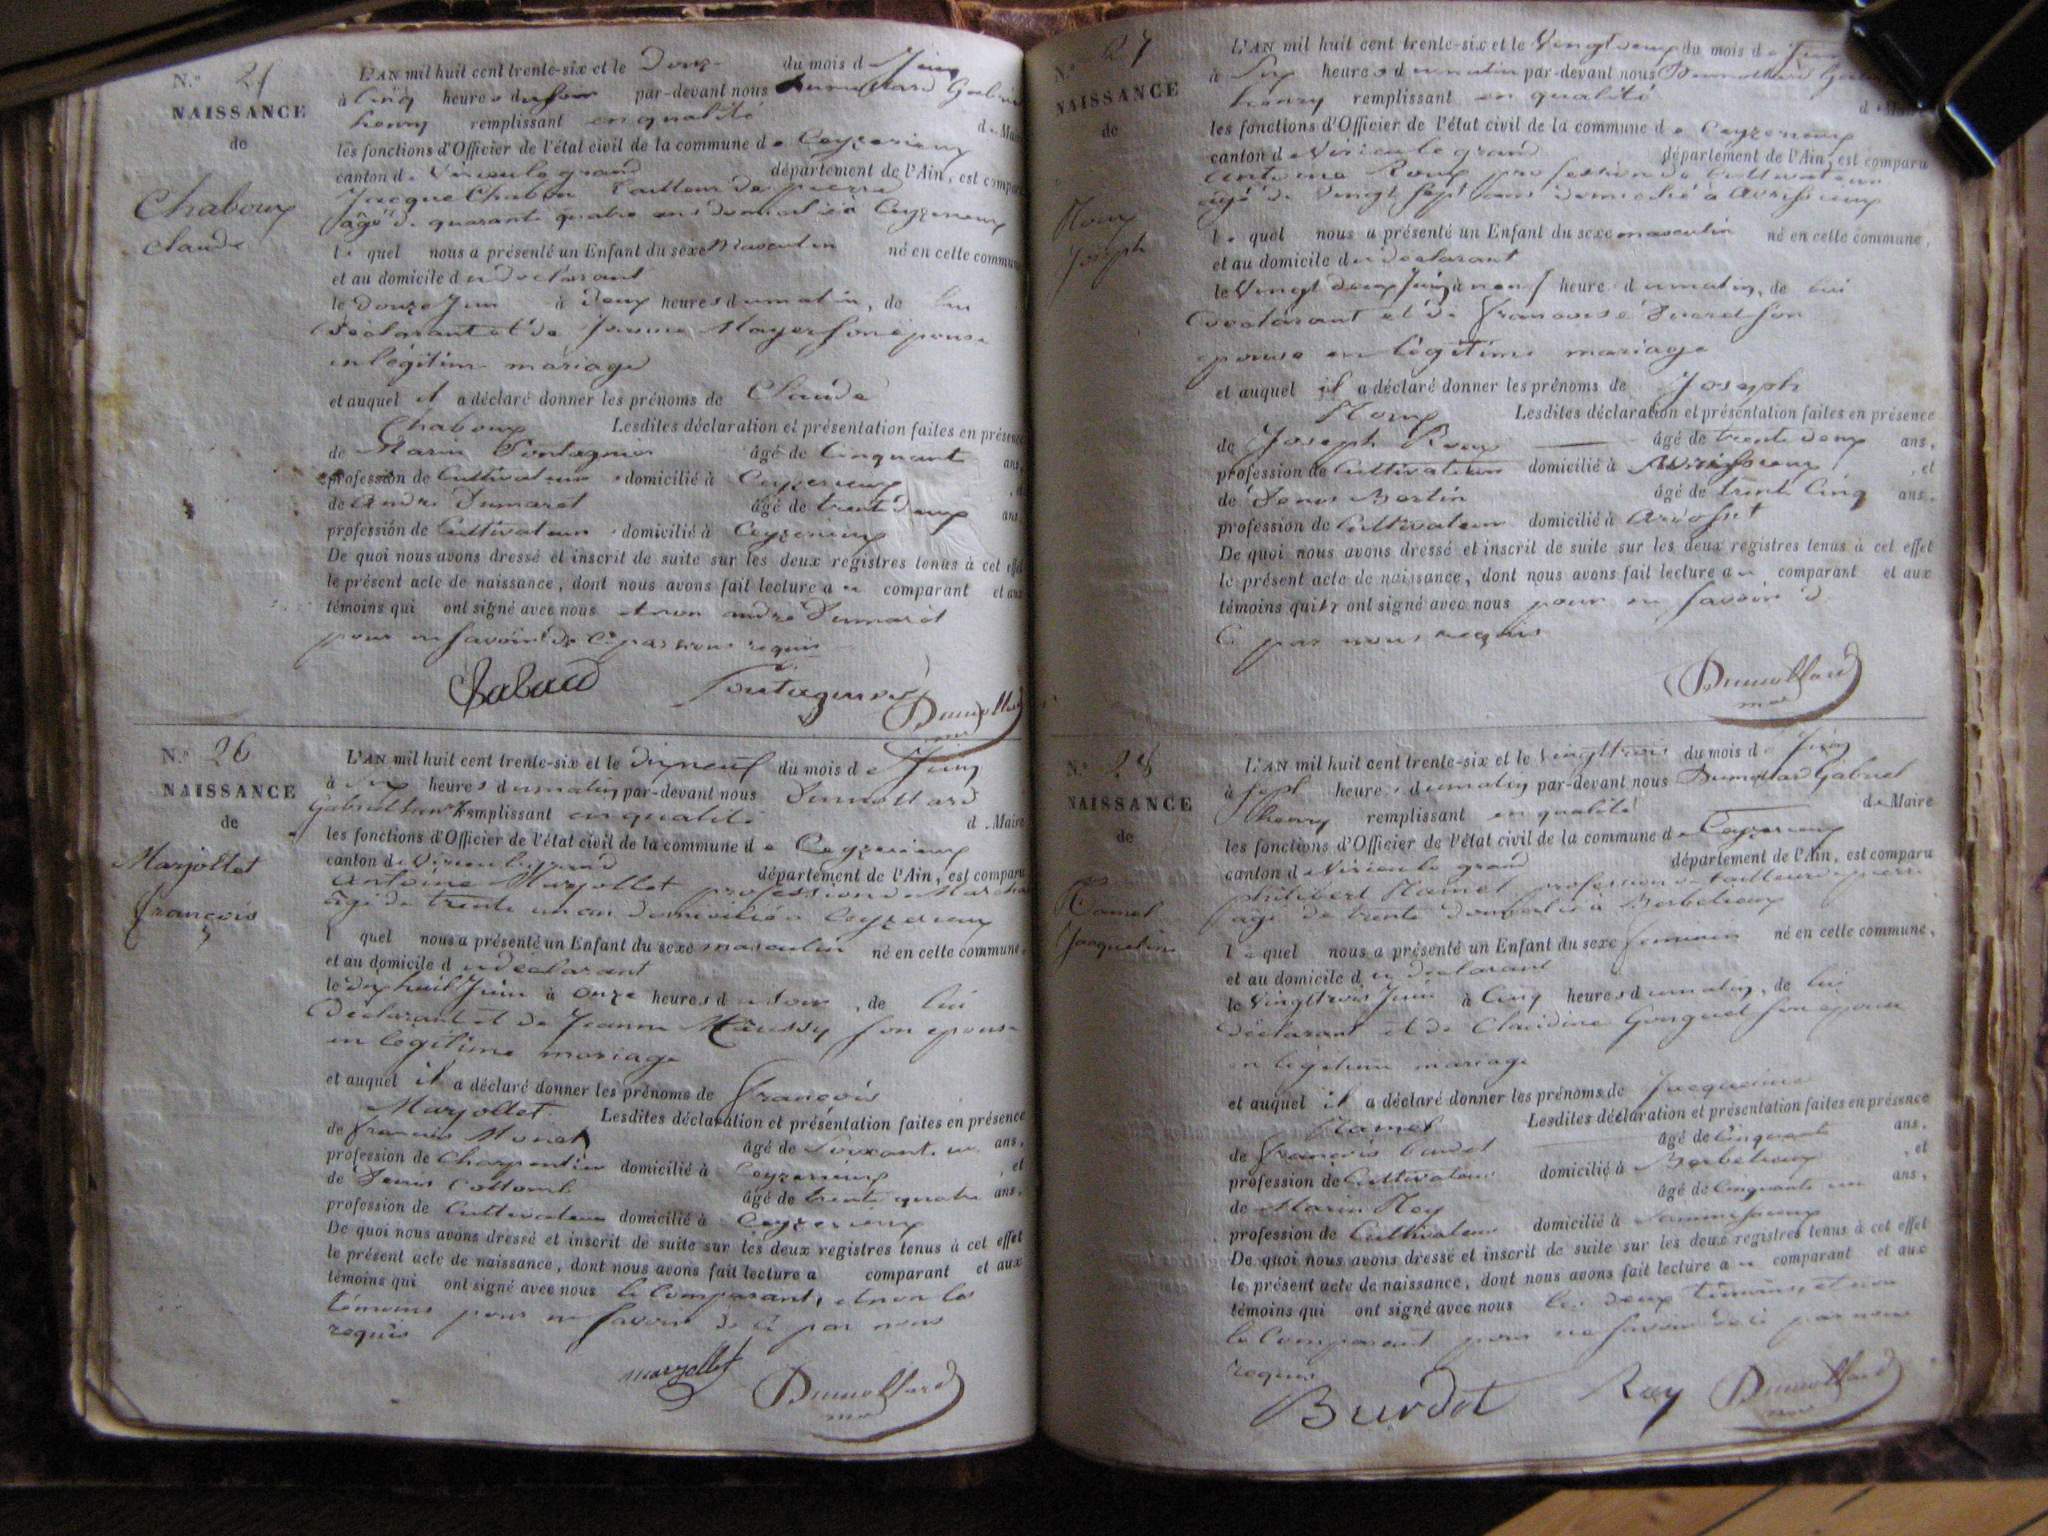 N.° 25
NAISSANCE
de
Chaboux
claude
L'AN mil huit cent trente-six et le Douze du mois de Juin
à Cinq heures du soir par-devant nous Dumollard Gabriel
henry remplissant en qualité de Maire
les fonctions d'Officier de l'état civil de la commune de Ceyzerieux
canton de Virieu le grand département de l'Ain, est comparu
Jacque Chaboux tailleur de pierre
âgé de quarante quatre ans domicilié à Ceyzerieux
le quel nous a présenté un Enfant du sexe Masculin né en cette commune
et au domicile du déclarant
le douze Juin à Deux heures du matin, de lui
déclarant et de Mayer son épouse
en légitime mariage
et auquel il a déclaré donner les prénoms de Claude
Chaboux Lesdites déclaration et présentation faites en présence
de Marin Pontagnier âgé de Cinquante ans,
profession de Cultivateur domicilié à Ceyzerieux , et
de andré Dumarest âgé de trente deux ans,
profession de Cultivateur domicilié à Ceyzerieux
De quoi nous avons dressé et inscrit de suite sur les deux registres tenus à cet effet
le présent acte de naissance, dont nous avons fait lecture au comparant et aux
témoins qui ont signé avec nous et non andré Dumarest
pour ne savoir de ce par nous requis
Chabaud Dumollard
N.° 26
NAISSANCE
de
Marjollet
françois
L'AN mil huit cent trente-six et le dix neuf du mois de Juin
à Six heures du matin par-devant nous Dumollard
Gabriel henry remplissant en qualité de Maire
les fonctions d'Officier de l'état civil de la commune de Ceyzerieux
canton de Virieu le grand département de l'Ain, est comparu
Antoine Marjollet profession de Marchand
âgé de trente un an domicilié à Ceyzerieux
l quel nous a présenté un Enfant du sexe masculin né en cette commune,
et au domicile du déclarant
le dix huit Juin à onze heures du soir, de lui
déclarant et de Jeanne Maussy son épouse
en légitime mariage
et auquel il a déclaré donner les prénoms de françois
Marjollet Lesdites déclaration et présentation faites en présence
de françois Monet âgé de Soixante un ans,
profession de Charpentier domicilié à Ceyzerieux , et
de Denis Collomb âgé de trente quatre ans,
profession de Cultivateur domicilié à Ceyzerieux
De quoi nous avons dressé et inscrit de suite sur les deux registres tenus à cet effet
le présent acte de naissance, dont nous avons fait lecture a comparant et aux
témoins qui ont signé avec nous le Comparant, et non les
témoins pour ne savoir de ce par nous
requis
marjollet Dumollard
N.° 27
NAISSANCE
de
Roux
Joseph
L'AN mil huit cent trente-six et le Vingt deux du mois de Juin
à Six heures du matin par-devant nous Dumollard Gabriel
henry remplissant en qualité de Maire
les fonctions d'Officier de l'état civil de la commune de Ceyzerieux
canton de Virieu le grand département de l'Ain, est comparu
antoine Roux profession de Cultivateur
âgé de Vingt Sept ans domicilié à Avrissieux
le quel nous a présenté un Enfant du sexe masculin né en cette commune,
et au domicile du déclarant
le Vingt deux Juin à heure du matin, de lui
déclarant et de françoise son
épouse en légitime mariage
et auquel il a déclaré donner les prénoms de Joseph
Roux Lesdites déclaration et présentation faites en présence
de Joseph Roux âgé de trente deux ans,
profession de Cultivateur domicilié à Avrissieux , et
de Denis Bertin âgé de trente Cinq ans,
profession de Cultivateur domicilié à
De quoi nous avons dressé et inscrit de suite sur les deux registres tenus à cet effet
le présent acte de naissance, dont nous avons fait lecture au comparant et aux
témoins qui ont signé avec nous pour ne savoir de
Ce par nous requis
Dumollard
N.° 28
NAISSANCE
de
Ramel
Jacqueline
L'AN mil huit cent trente-six et le Vingt trois du mois de Juin
à Sept heures du matin par-devant nous Dumollard Gabriel
henry remplissant en qualité de Maire
les fonctions d'Officier de l'état civil de la commune de Ceyzerieux
canton de Virieu le grand département de l'Ain, est comparu
philibert Ramel profession de tailleur de pierre
âgé de trente domicilié à
le quel nous a présenté un Enfant du sexe féminin né en cette commune,
et au domicile du déclarant
le Vingt trois Juin à Cinq heures du matin, de lui
déclarant et de Claudine son épouse
en légitime mariage
et auquel il a déclaré donner les prénoms de Jacqueline
Ramel Lesdites déclaration et présentation faites en présence
de françois Burdet âgé de Cinquante ans,
profession de Cultivateur domicilié à , et
de Marin Rey âgé de Cinquante un ans,
profession de Cultivateur domicilié à
De quoi nous avons dressé et inscrit de suite sur les deux registres tenus à cet effet
le présent acte de naissance, dont nous avons fait lecture au comparant et aux
témoins qui ont signé avec nous les deux témoins, et non
le Comparant pour ne savoir de ce par nous
requis
Burdet Rey Dumollard